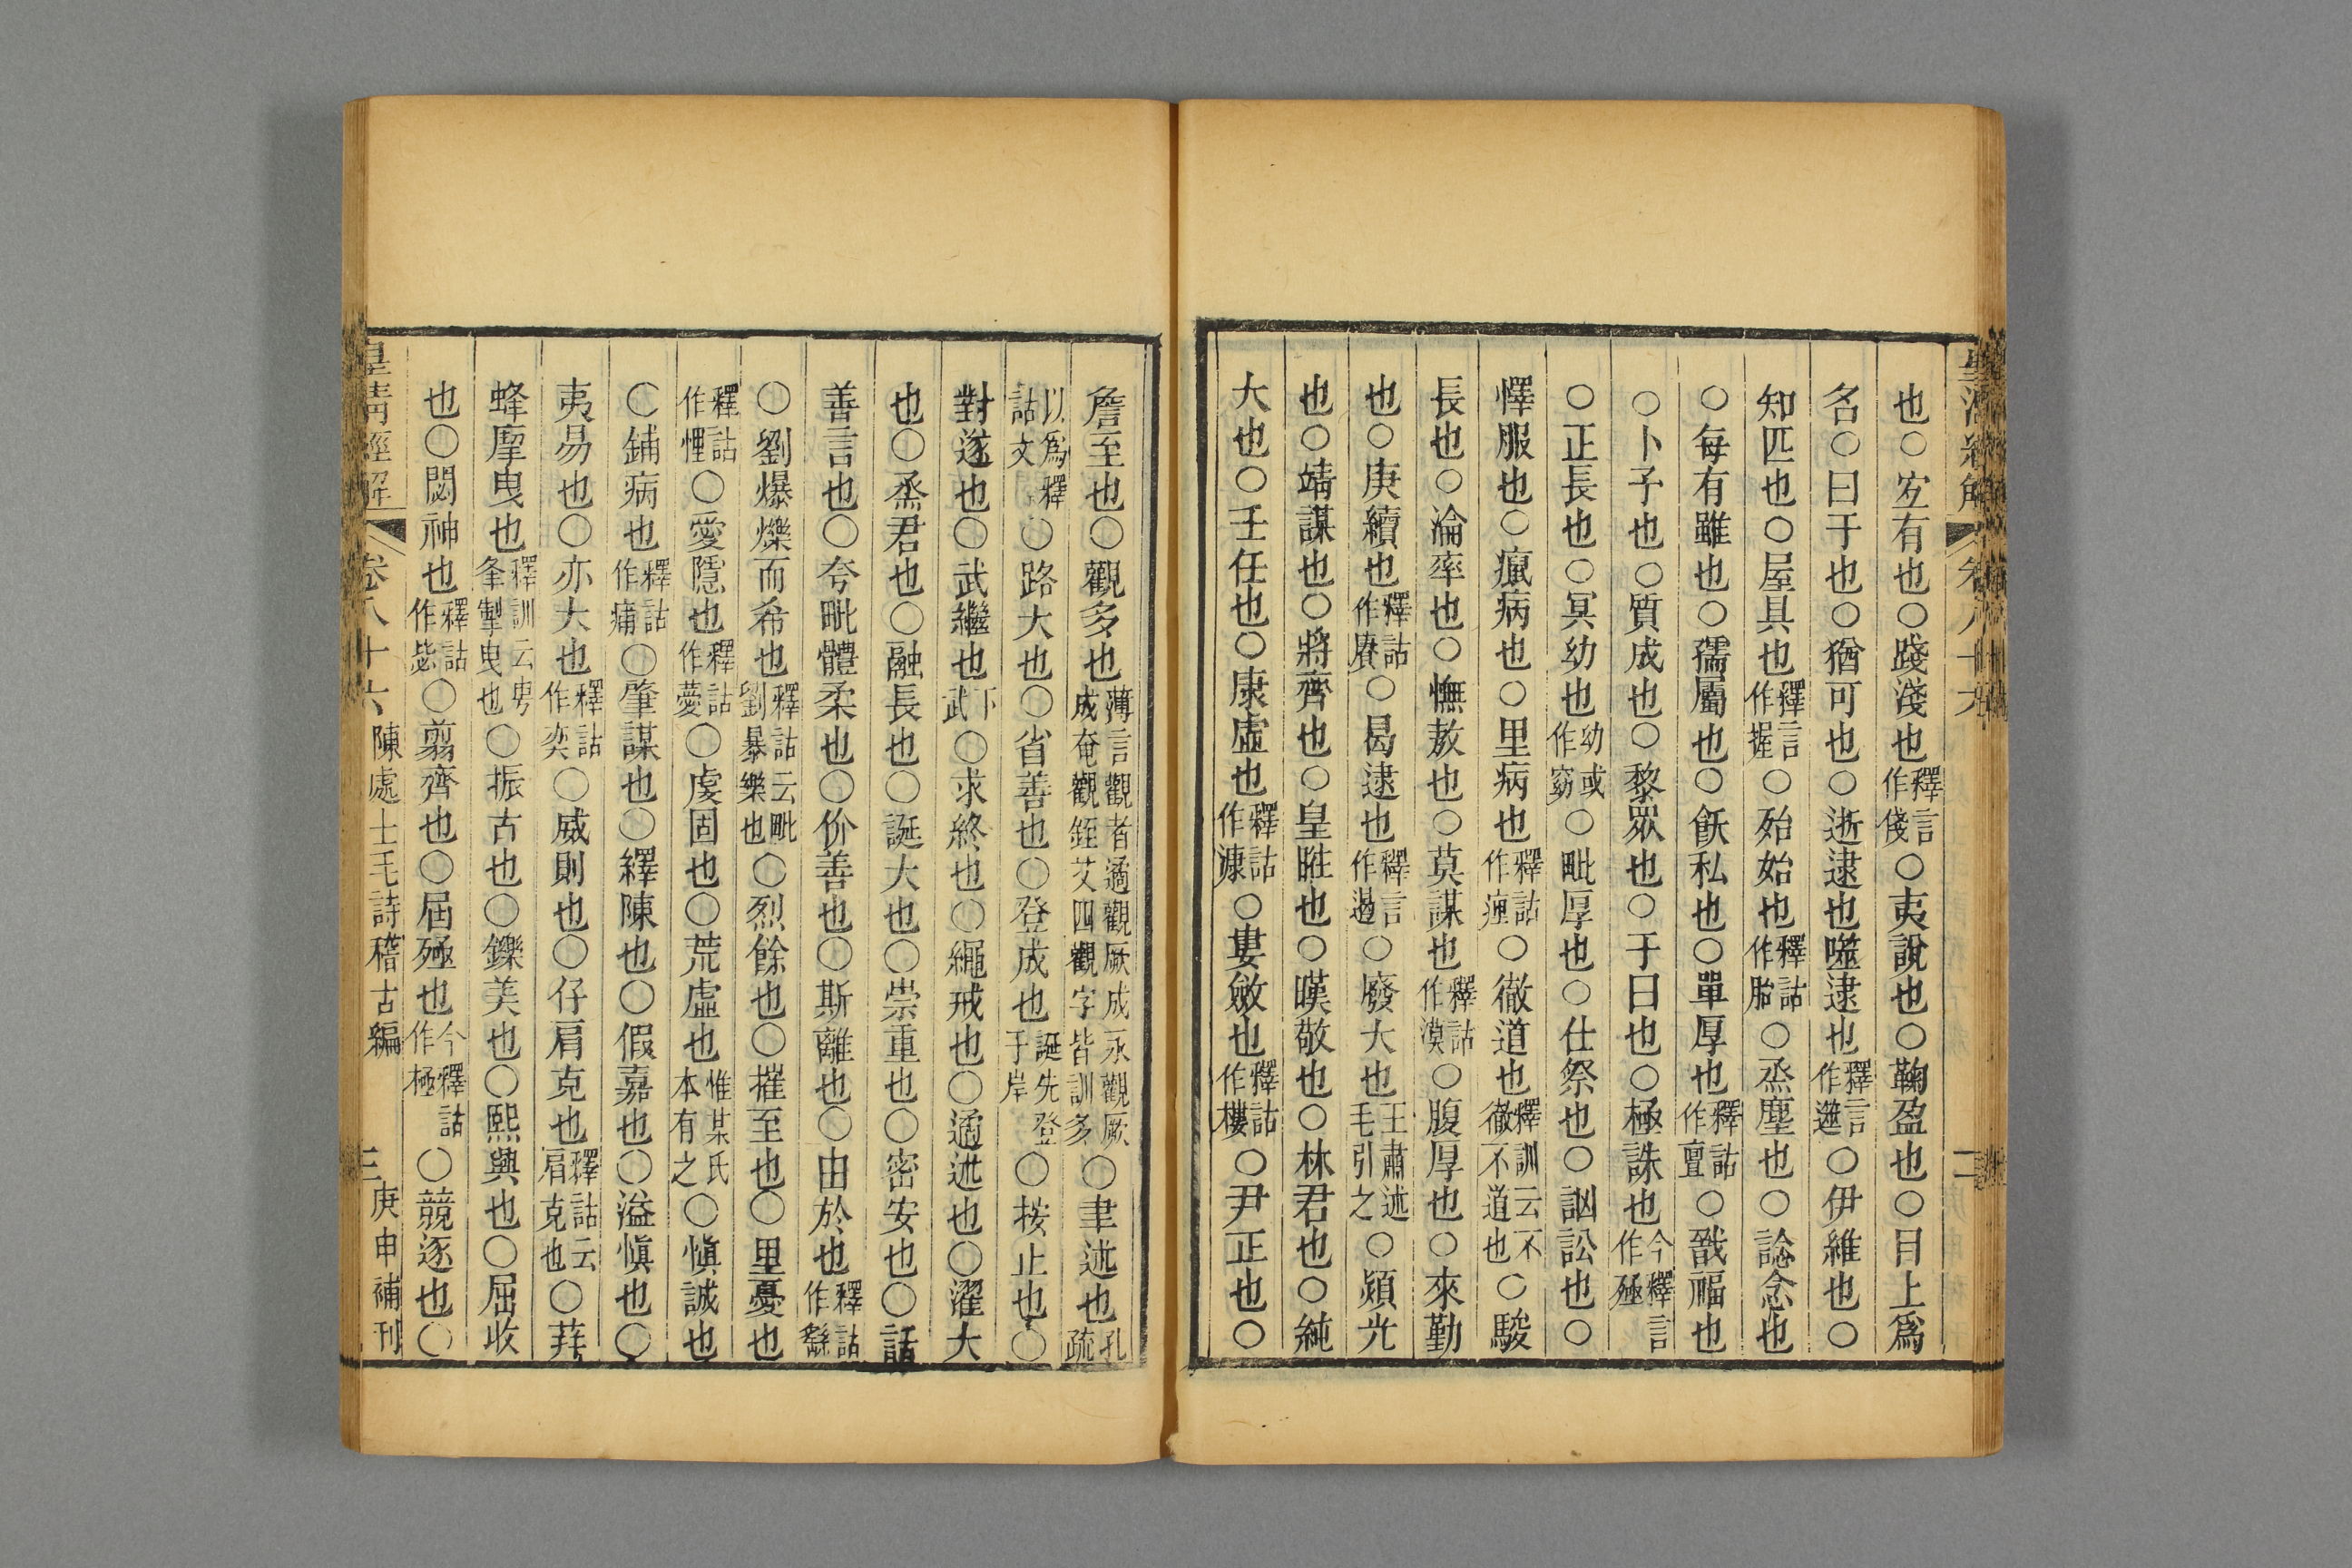 也○㝉有也○踐淺也釋言作俴○夷說也○鞠盈也○目上爲
名○曰于也○猶可也○逝逮也噬逮也釋言作遾○伊維也○
知匹也○屋具也釋言作握○殆始也釋詁作胎○烝塵也○諗念也
○每有雖也○孺屬也○飫私也○單厚也釋詁作亶○戩福也
○卜予也○質成也○黎眾也○于曰也○極誅也今釋言作殛
○正長也○冥幼也幼或作窈○毗厚也○仕祭也○訩訟也○
懌服也○癙病也○里病也釋詁作㾖○徹道也釋訓云不徹不道也○駿
長也○淪率也○憮敖也○莫謀也釋詁作漠○腹厚也○來勤
也○庚續也釋詁作賡○曷逮也釋言作遏○廢大也王肅述毛引之○熲光
也○靖謀也○將齊也○皇暀也○嘆敬也○林君也○純
大也○壬任也○康虛也釋詁作漮○婁斂也釋詁作樓○尹正也○
皇清經解 卷八十六 二
詹至也○觀多也薄言觀者遹觀厥成永觀厥成奄觀銍艾四觀字皆訓多○聿述也孔疏
以爲釋詁文○路大也○省善也○登成也誕先登于岸○按止也○
對遂也○武繼也下武○求終也○繩戒也○遹述也○濯大
也○烝君也○融長也○誕大也○崇重也○密安也○話
善言也○夸毗體柔也○价善也○斯離也○由於也釋詁作繇
○劉爆爍而希也釋詁云毗劉暴樂也○烈餘也○摧至也○里憂也
釋詁作悝○愛隱也釋詁作薆○虔固也○荒虛也惟某氏本有之○愼誠也
○鋪病也釋詁作痡○肇謀也○繹陳也○假嘉也○溢愼也○
夷易也○亦大也釋詁作奕○威則也○仔肩克也釋詁云肩克也○荓
蜂摩曳也釋訓云甹夆掣曳也○振古也○鑠美也○熙興也○屈收
也○閟神也釋詁作毖○翦齊也○屆殛也今釋詁作極○競逐也○
皇清經解 卷八十六 陳處士毛詩稽古編 三 庚申補刊